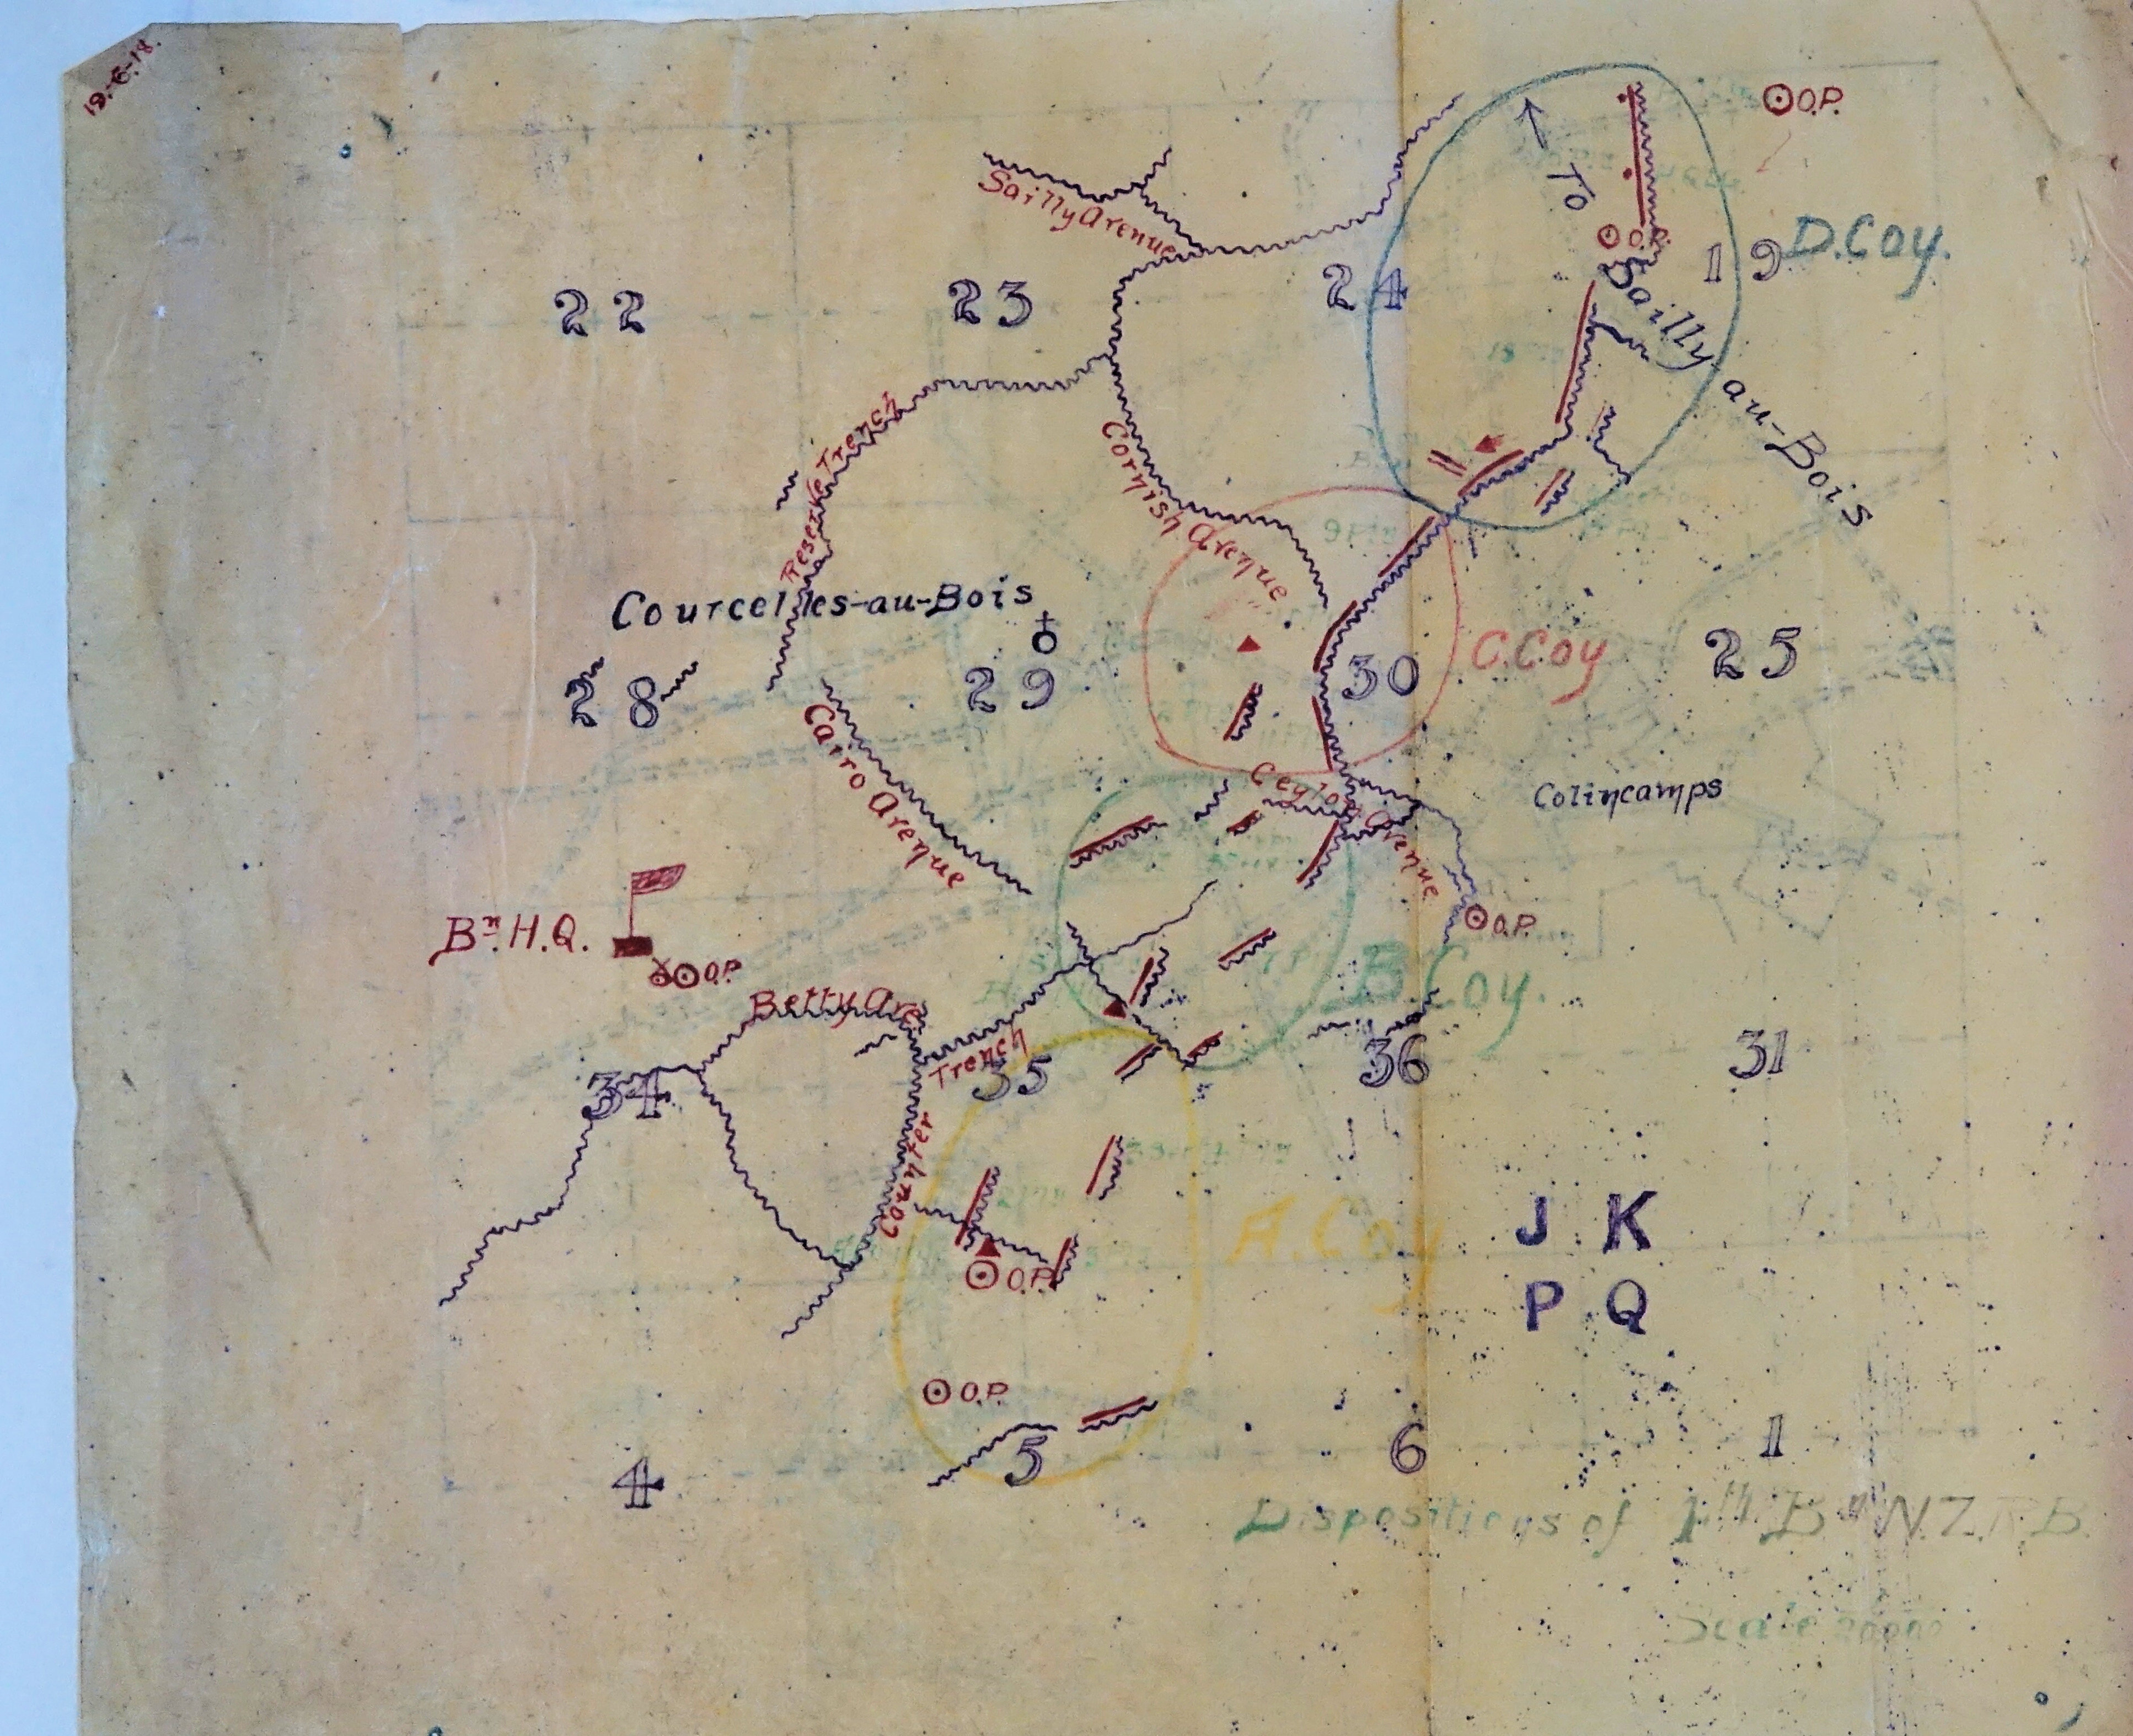 19.-6-18.
O.P.
Sailly Avenue
To
Sailly au-Bois
O.P.
D.Coy.
22
23
24
19
Reserve Trench
Cornish Avenue
Courcelles-au-Bois
C.Coy
28
29
30
25
Cairo Avenue
Ceylon Avenue
Colincamps
Bn. H.Q.
O.P.
O.P.
B.Coy.
Betty Ave
Trench
Counter
34
35
36
31
A.Coy
J K
P Q
O.P.
O.P.
4
5
6
1
Dispositions of 1st Bn N.Z.R.B.
Scale 20000